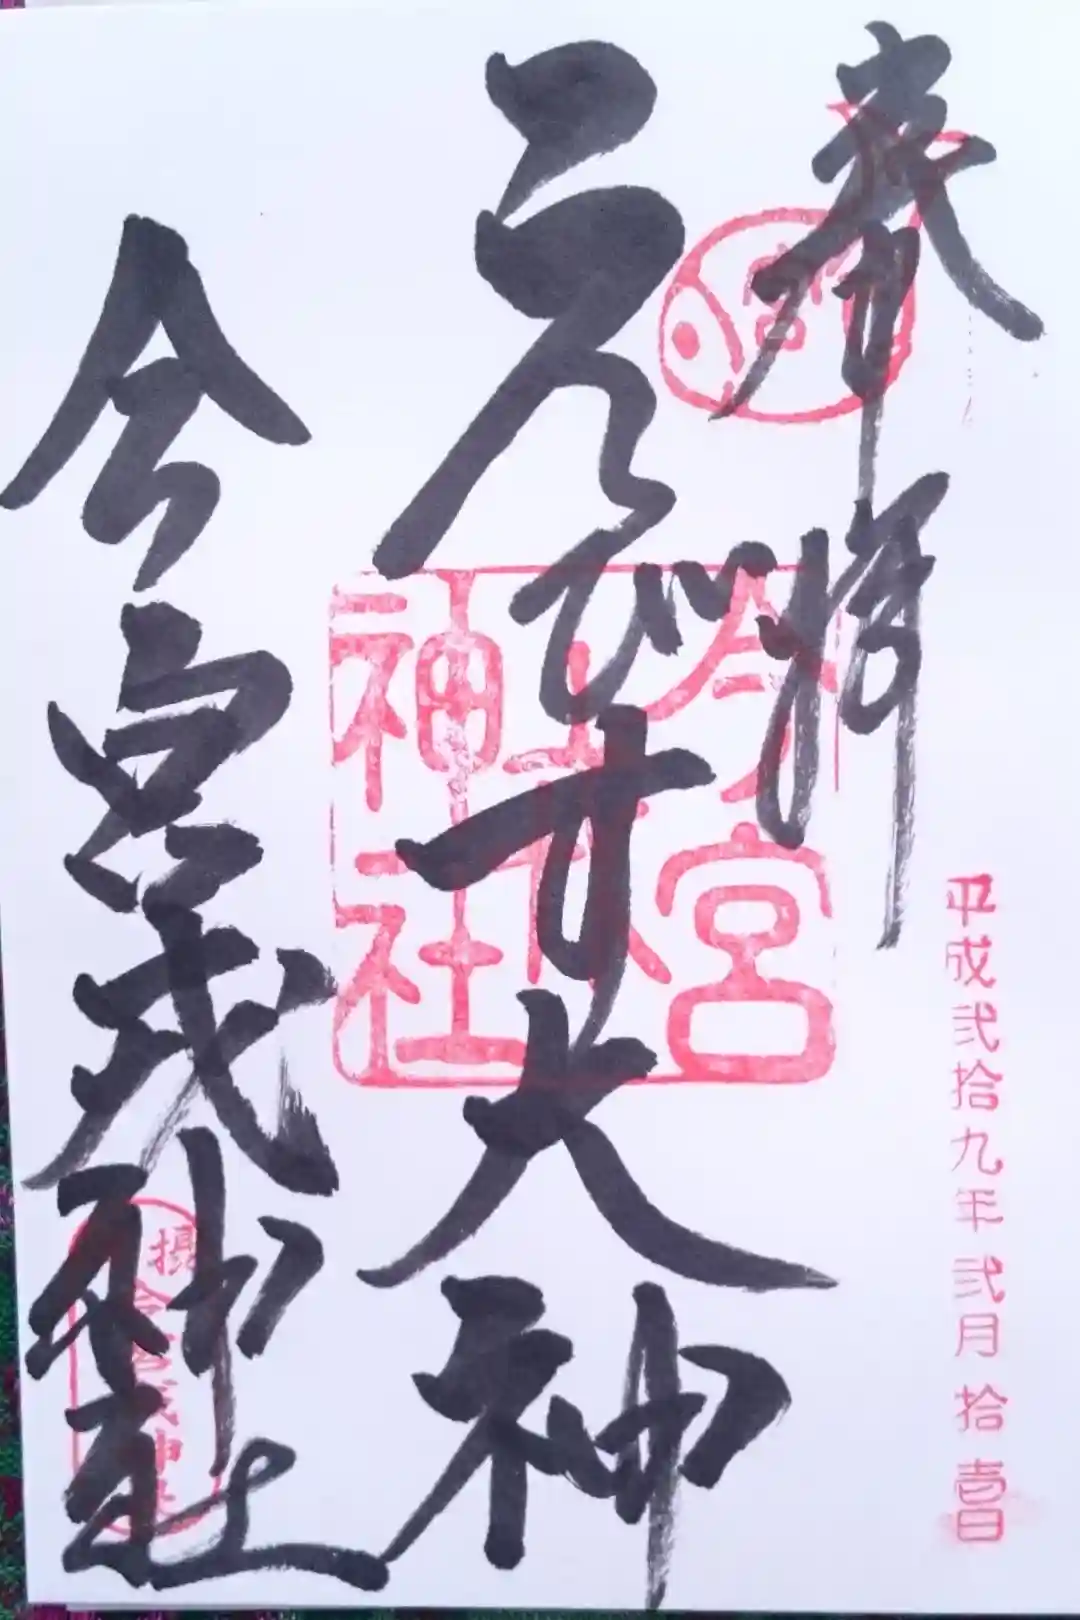 奉拝
平成弐拾九年弐月拾壱日
えびす大神
今宮戎神社
今宮戎神社